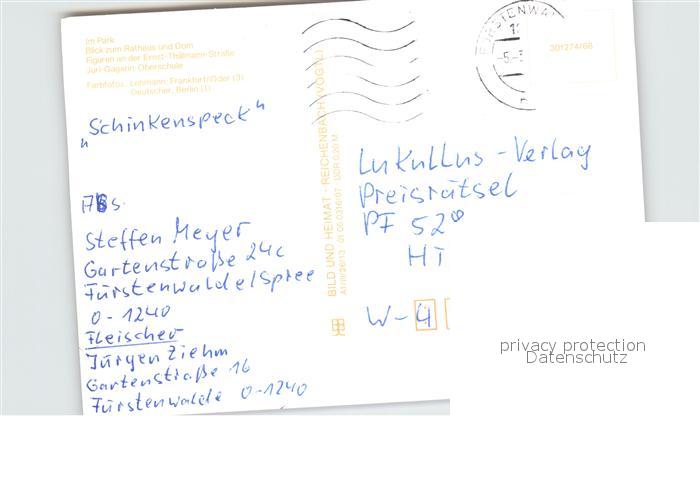 Im Park
Blick zum Rathaus und Dom
Figuren an der Ernst-Thälmann-Straße
Juri-Gagarin-Oberschule
Farbfotos: Lehmann, Frankfurt/Oder (3)
Deutscher, Berlin (1)
"Schinkenspeck"
Abs.
Steffen Meyer
Gartenstraße 24c
Fürstenwalde/Spree
O-1240
Fleischer
Jürgen Ziehm
Gartenstraße 16
Fürstenwalde O-1240
BILD UND HEIMAT · REICHENBACH (VOGTL)
FÜRSTENWAL
301274/68
Lukullus-Verlag
Preisrätsel
PF 520
HT
W-4
privacy protection
Datenschutz